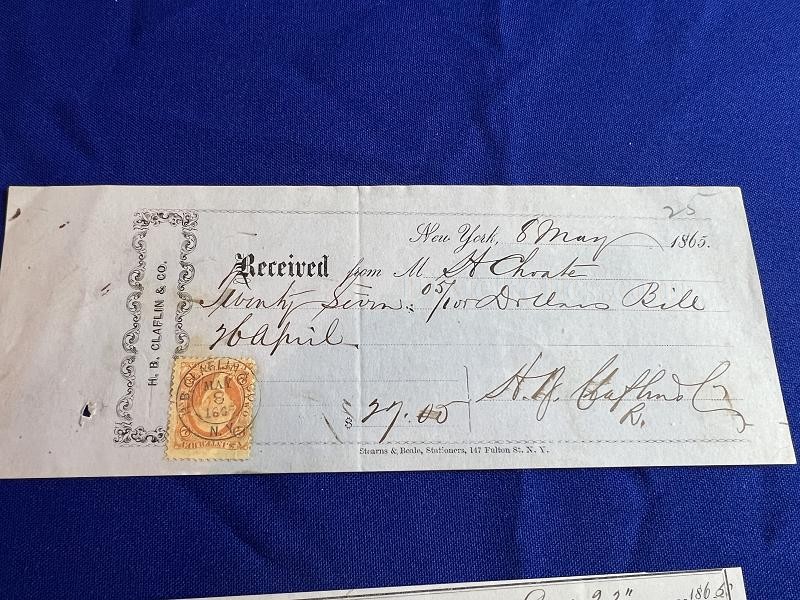 25
New York, 8 May 1865.
Received from M. H Choate
Twenty Seven 05/100 Dollars Bill
26 April
H. B. CLAFLIN & CO.
MAY
8
N.Y.
$ 27.05
H. B. Claflin & Co
R.
Stearns & Beale, Stationers, 147 Fulton St. N. Y.
1865